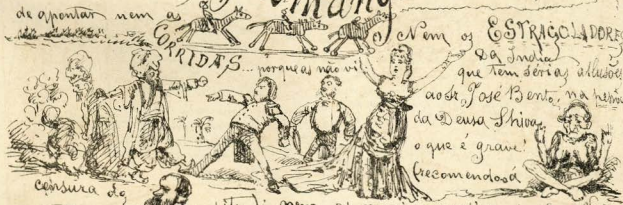 de apontar nem as
CORRIDAS
...porque as não vi!
Nem os ESTRAGOLADORES
da India
que tem sérias allusões
ao Sr. José Bento, na
da Deusa Shiva,
o que é grave!
(recomendo a
censura do